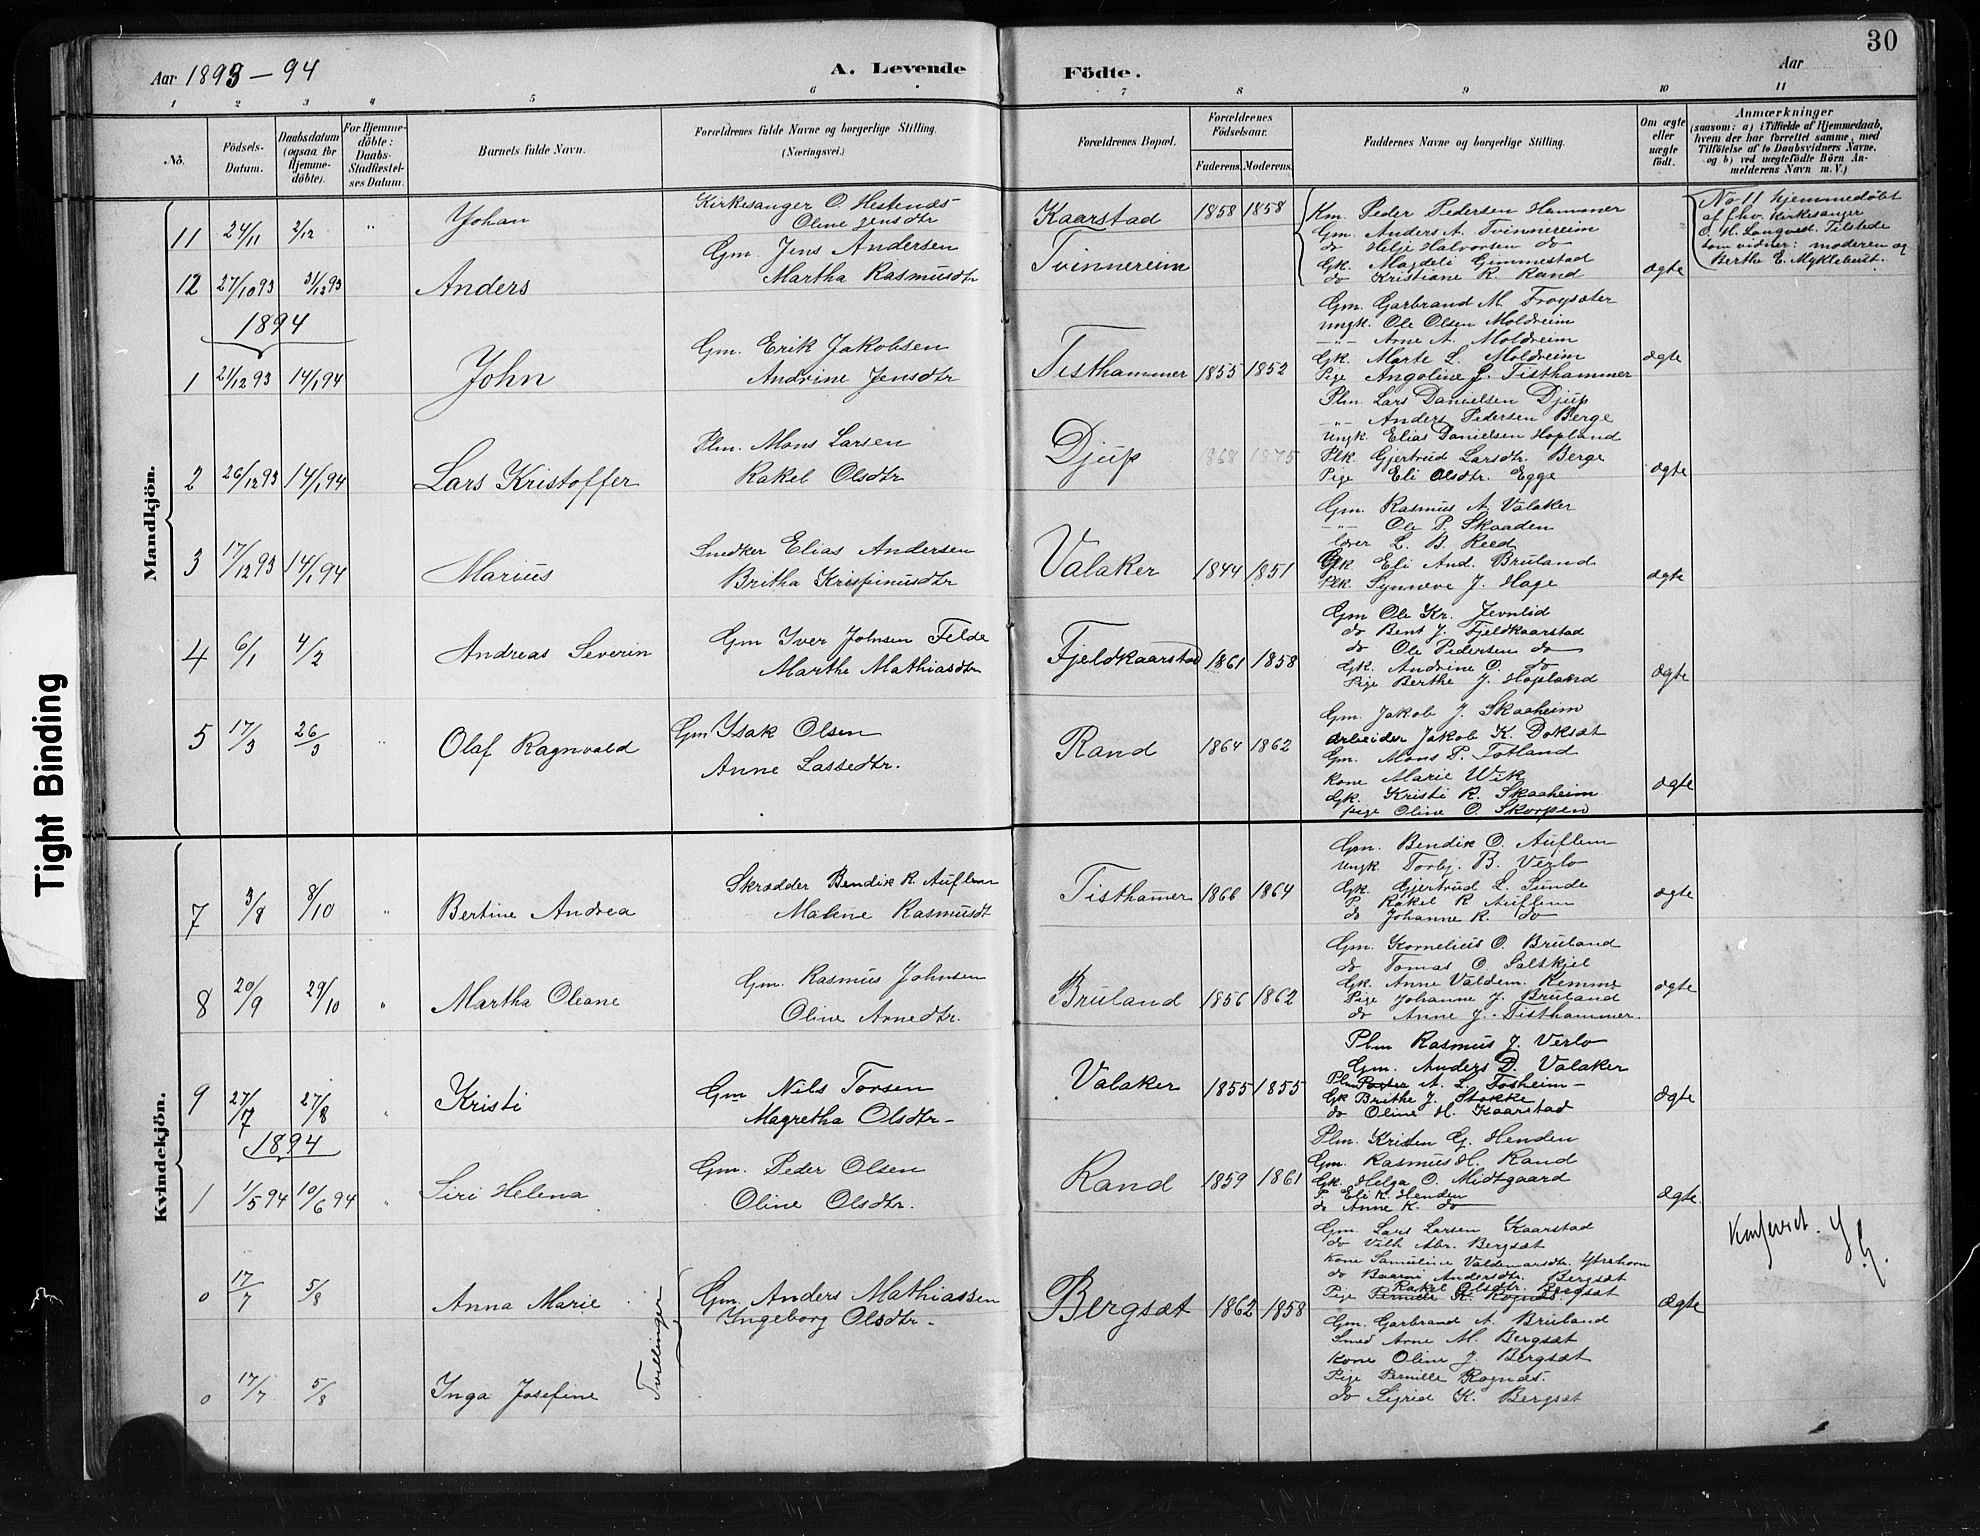 30
Aar 1893 - 94
A. Levende
Födte.
Aar
1 2 3 4 5 6 7 8 9 10 11
No.
Födsels-
Datum.
Daabsdatum
(ogsaa for
Hjemme-
döbte).
For Hjemme-
döbte:
Daabs-
Stadfæstel-
ses Datum.
Barnets fulde Navn.
Forældrenes fulde Navne og borgerlige Stilling.
(Næringsvei.)
Forældrenes Bopæl.
Forældrenes
Födselsaar.
Faderens.
Moderens.
Faddernes Navne og borgerlige Stilling.
Om ægte
eller
uægte
födt.
Anmærkninger
(saasom: a) i Tilfælde af Hjemmedaab,
hvem der har forrettet samme, med
Tilföielse af to Daabsvidners Navne.
og b) ved uægtefödte Börn An-
melderens Navn m. V.)
Mandkjön.
11 24/11 2/12 " Johan
Kirkesanger O. Hestenæs
Oline Jensdtr
Kaarstad 1858 1858
12 27/10 93 31/12 93 Anders
Gm. Jens Andersen
Martha Rasmusdtr
Tvinnereim
Km. Peder Pedersen Hammer
Gm. Anders A. Tvinnereim
do Helje Halvorsen do
Gk. Magdeli Gimmestad
do Kristiane R. Rand
ægte
No 11 hjemmedöbt
af fhv. Kirkesanger
O. H. Langved. Tilstede
som vidner: moderen og
Berthe E. Myklebust.
1894
1 21/12 93 14/1 94 John
Gm. Erik Jakobsen
Andrine Jensdtr
Tisthammer 1855 1852
Gm. Garbrand M. Froysæter
ungk. Ole Olsen Moldreim
-"- Arne A. Moldreim
Gk. Marte L. Moldreim
Pige Angoline J. Tisthammer
ægte
2 26/12 93 14/1 94 Lars Kristoffer
Plm. Mons Larsen
Rakel Olsdtr
Djup 1868 1875
Plm. Lars Danielsen Djup
-"- Anders Pedersen Berge
ungk. Elias Danielsen Hopland
Plk. Gjertrud Larsdtr. Berge
Pige Eli Olsdtr. Egge
ægte
3 17/12 93 14/1 94 Marius
Snedker Elias Andersen
Britha Krispinusdtr
Valaker 1844 1851
Gm. Rasmus A. Valaker
-"- Ole P. Skaaden
lærer L. B. Reed
Gk. Eli And. Bruland
Plk. Synneve J. Hage
ægte
4 6/1 4/2 Andreas Severin
Gm Iver Johnsen Felde
Marthe Mathiasdtr
Fjeldkaarstad 1861 1858
Gm Ole Kr. Jevnlid
do Bent J. Fjeldkaarstad
do Ole Pedersen do
Gk. Andrine O. do
Pige Berthe J. Hopland
ægte
5 17/3 26/3 " Olaf Ragnvald
Gm Isak Olsen
Anne Lassedtr.
Rand 1864 1862
Gm. Jakob J. Skaaheim
Arbeider Jakob K. Doksæt
Gm. Mons P. Totland
Kone Marie Wik
Gk. Kristi R. Skaaheim
pige Oline O. Skorpen
ægte
Kvindekjön.
7 3/8 8/10 " Bertine Andrea
Skrædder Bendik R. Auflem
Malene Rasmusdt
Tisthamer 1866 1864
Gm. Bendik O. Auflem
ungk Torbj. B. Verlo
Gk. Gjertrud L. Sunde
P Rakel R Auflem
do Johanne R. do
ægte
8 20/9 29/10 " Martha Oleane
Gm. Rasmus Johnsen
Oline Arnedtr.
Bruland 1856 1862
Gm. Kornelius O. Bruland
do Tomas O Saltkjel
Gk. Anne Valdem. Remme
Pige Johanne J. Bruland
do Anne J. Tisthammer.
ægte
9 27/7 27/8 " Kristi
Gm Nils Torsen
Magretha Olsdtr-
Valaker 1855 1855
Plm Rasmus J. Verlo
Gm. Anders D. Valaker
Plm A. L. Tosheim-
Gk Brithe J. Stokke
do Oline H. Kaarstad
ægte
1894
1 1/5 94 10/6 94 " Siri Helena
Gm. Peder Olsen
Oline Olsdtr.
Rand 1859 1861
Plm. Kristen G. Henden
Gm. Rasmus H. Rand
Gk. Helga O. Midtgaard
P Eli K. Henden
do Anne K. do
ægte
0 17/7 5/8 Anna Marie
Tvillinger
Gm. Anders Mathiassen
Ingeborg Olsdtr-
Bergsæt 1862 1858
Gm. Lars Larsen Kaarstad
do Vilh Abr. Bergsæt
Kone Samuline Valdemarsdtr. Ytrehorn
do Baarni Andersdtr. Bergsæt
Rakel Olsdtr. Bergsæt
Pige Pernille K. Rognæs
ægte
Konfereret.
0 17/7 5/8 Inga Josefine
Gm. Garbrand A. Bruland
Smed Arne M. Bergsæt
Kone Oline J. Bergsæt
Pige Pernille Rognæs.
do Sigrid K. Bergsæt
Tight Binding